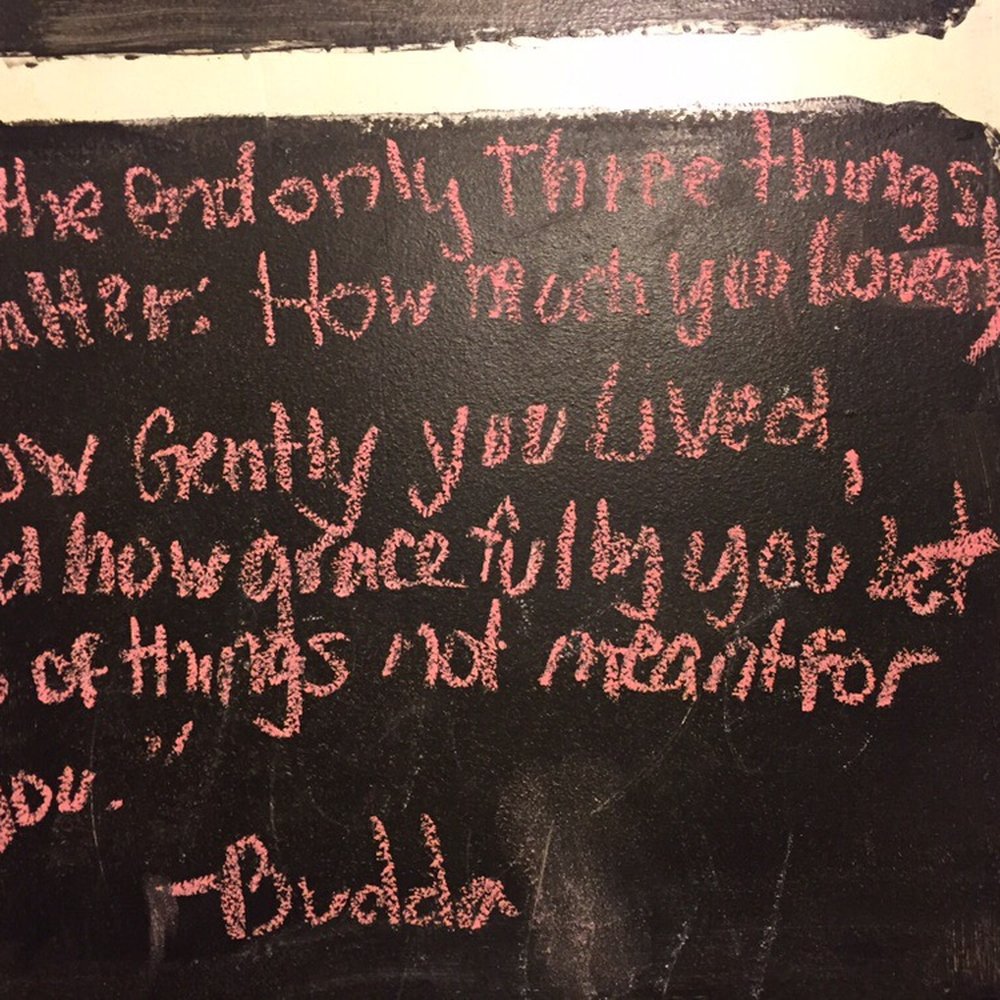 the end only Three things
atter: How much you Loved,
ow Gently you Lived,
d how gracefully you let
o of things not meant for
you.
-Budda